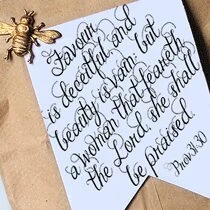 Favour
is deceitful, and
beauty is vain: but
a woman that feareth
the Lord, she shall
be praised.
Prov 31:30